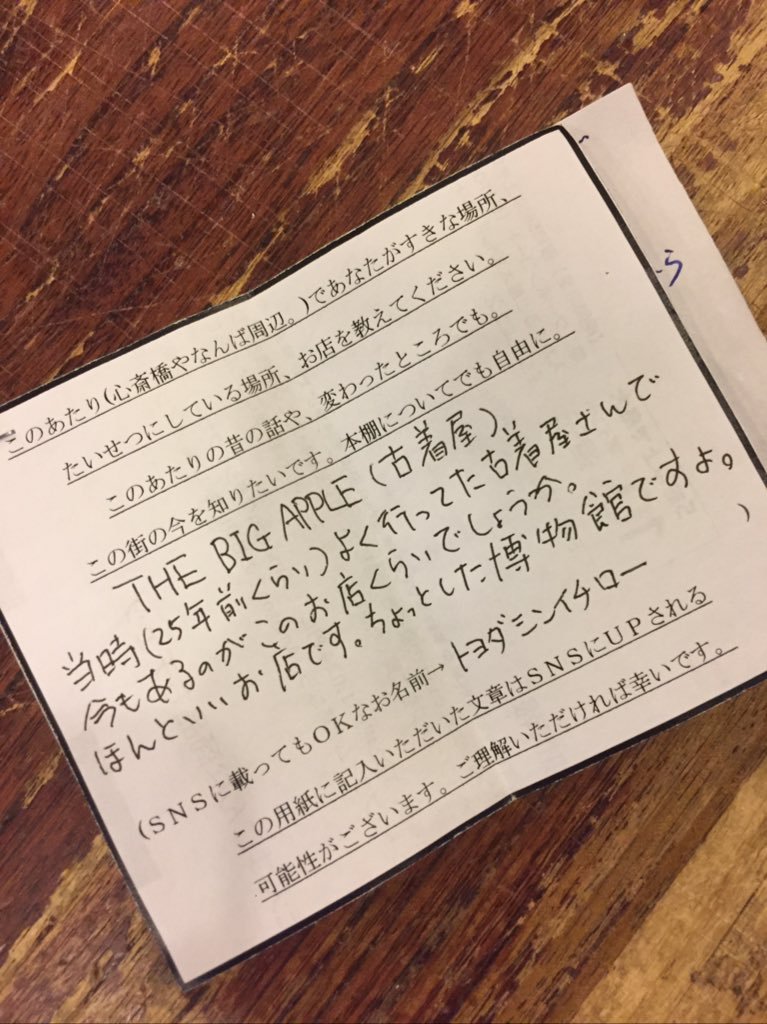 このあたり(心斎橋やなんば周辺。)であなたがすきな場所、
たいせつにしている場所、お店を教えてください。
このあたりの昔の話や、変わったところでも。
この街の今を知りたいです。本棚についてでも自由に。
THE BIG APPLE (古着屋)
当時(25年前くらい)よく行ってた古着屋さんで
今もあるのがこのお店くらいでしょうか。
ほんといいお店です。ちょっとした博物館ですよ。
(SNSに載ってもOKなお名前→トヨダミンイチロー)
この用紙に記入いただいた文章はSNSにUPされる
可能性がございます。ご理解いただければ幸いです。
ら